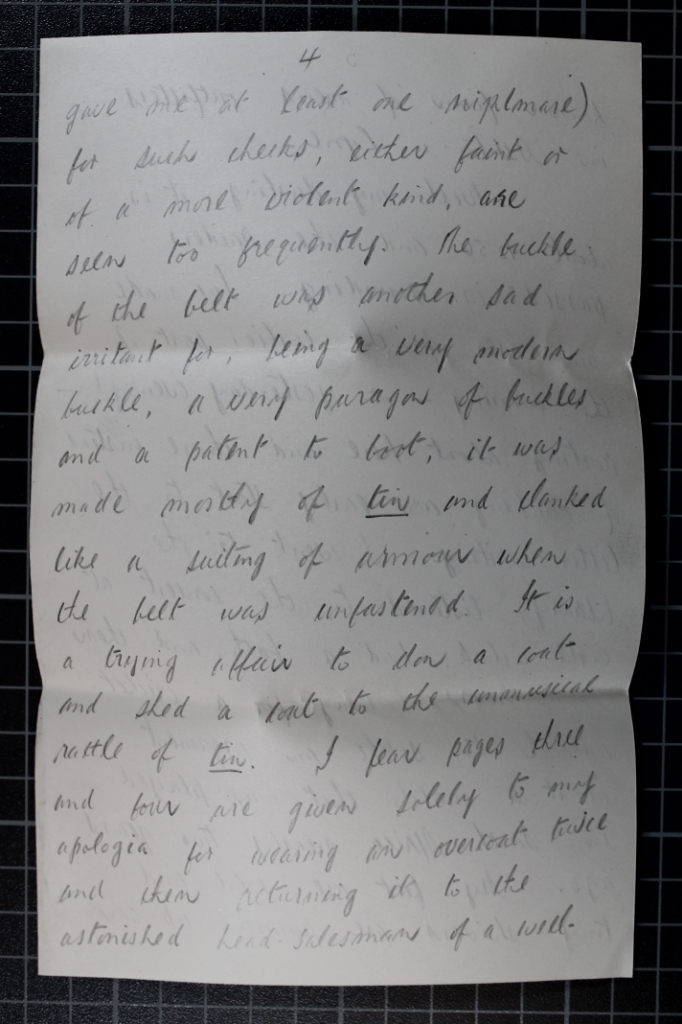 4
gave me at least one nightmare)
for such checks, either faint or
of a more violent kind, are
seen too frequently. The buckle
of the belt was another sad
irritant for, being a very modern
buckle, a very paragon of buckles
and a patent to boot, it was
made mostly of tin and clanked
like a suiting of armour when
the belt was unfastened. It is
a trying affair to don a coat
and shed a coat to the unmusical
rattle of tin. I fear pages three
and four are given solely to my
apologia for wearing an overcoat twice
and then returning it to the
astonished head-salesman of a well-